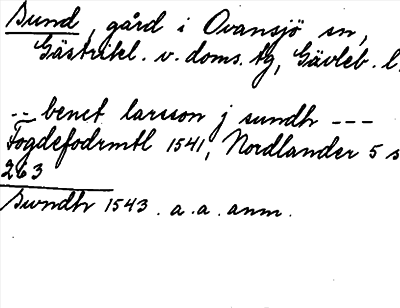 Sund, gård i Ovansjö sn,
Gästrikl. v. doms. tg, Gävleb. l.
-- benct larsson j sundh ---
Fogdefodrmtl 1541, Nordlander 5 s
263
Swndh 1543. a. a. anm.